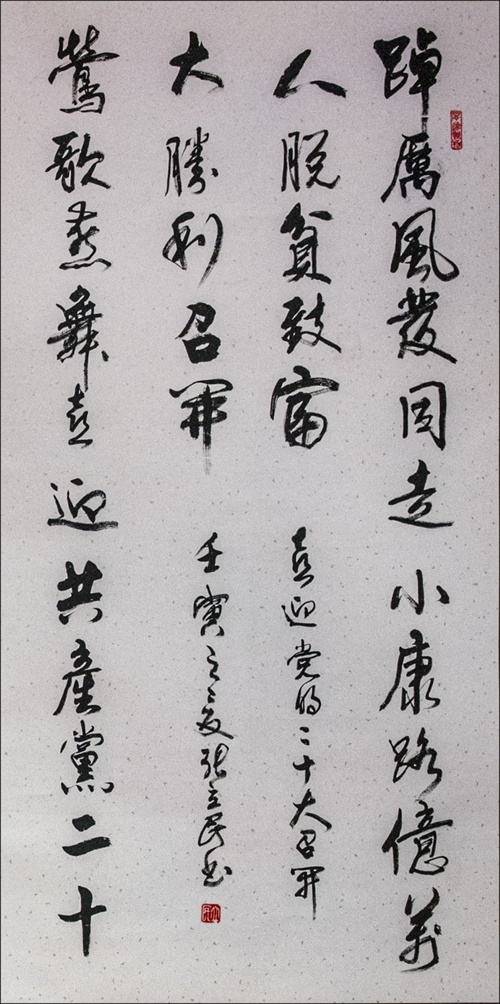 踔厲風發同走小康路億萬
人脱貧致富
鶯歌燕舞喜迎共產黨二十
大勝利召開
喜迎党的二十大召開
壬寅之夏張立民书